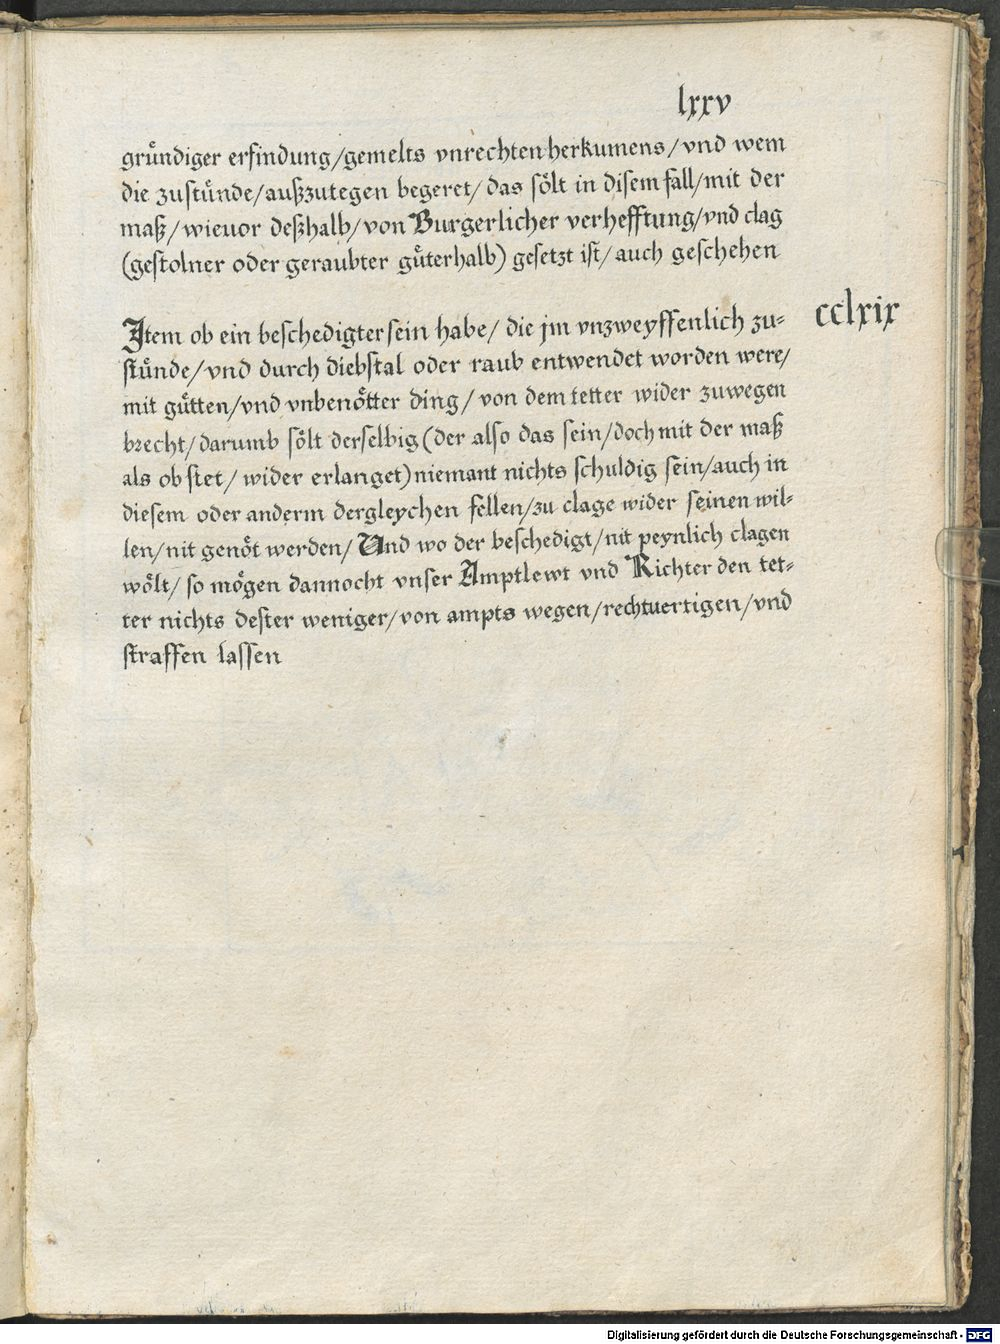 lxxv
gruͤndiger erfindung/gemelts vnrechten herkumens/vnd wem
die zustuͤnde/außzutegen begeret/das soͤlt in disem fall/mit der
maß/wieuor deßhalb/von Burgerlicher verhefftung/vnd clag
(gestolner oder geraubter guͤterhalb) gesetzt ist/auch geschehen
cclxix
Item ob ein beschedigter sein habe/die jm vnzweyffenlich zu-
stuͤnde/vnd durch diebstal oder raub entwendet worden were/
mit guͤtten/vnd vnbenoͤtter ding/von dem tetter wider zuwegen
brecht/darumb soͤlt derselbig (der also das sein/doch mit der maß
als ob stet/wider erlanget) niemant nichts schuldig sein/auch in
diesem oder anderm dergleychen fellen/zu clage wider seinen wil-
len/nit genoͤt werden/Und wo der beschedigt/nit peynlich clagen
woͤlt/so moͤgen dannocht vnser Amptlewt vnd Richter den tet-
ter nichts dester weniger/von ampts wegen/rechtuertigen/vnd
straffen lassen
Digitalisierung gefördert durch die Deutsche Forschungsgemeinschaft - DFG